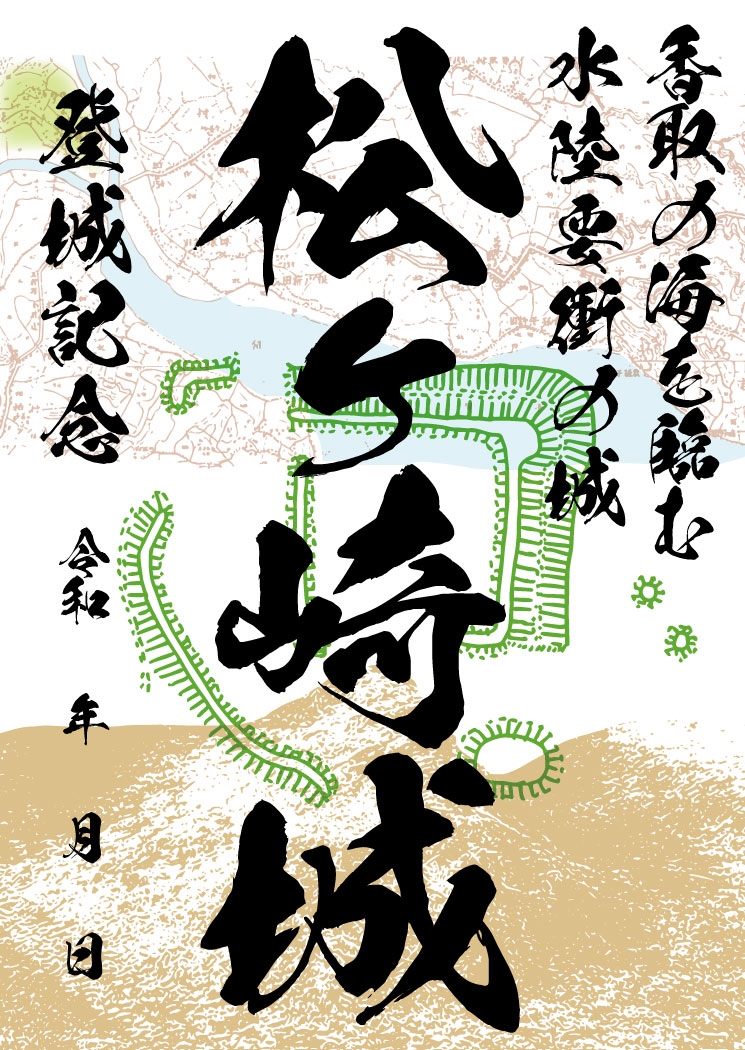 香取の海を臨む
水陸要衝の城
松ヶ崎城
登城記念
令和　年　月　日